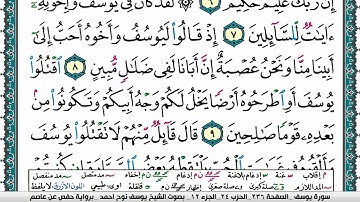 إِنَّ رَبَّكَ عَلِيمٌ حَكِيمٌ ٦ لَّقَدْ كَانَ فِي يُوسُفَ وَإِخْوَتِهِۦٓ
ءَايَٰتٌ لِّلسَّآئِلِينَ ٧ إِذْ قَالُوا۟ لَيُوسُفُ وَأَخُوهُ أَحَبُّ إِلَىٰٓ
أَبِينَا مِنَّا وَنَحْنُ عُصْبَةٌ إِنَّ أَبَانَا لَفِي ضَلَٰلٍ مُّبِينٍ ٨ ٱقْتُلُوا۟
يُوسُفَ أَوِ ٱطْرَحُوهُ أَرْضًا يَخْلُ لَكُمْ وَجْهُ أَبِيكُمْ وَتَكُونُوا۟ مِنۢ
بَعْدِهِۦ قَوْمًا صَٰلِحِينَ ٩ قَالَ قَآئِلٌ مِّنْهُمْ لَا تَقْتُلُوا۟ يُوسُفَ
سورة يوسف الصفحة ٢٣٦ الحزب ٢٤ الجزء ١٢ بصوت الشيخ يوسف نوح أحمد برواية حفص عن عاصم